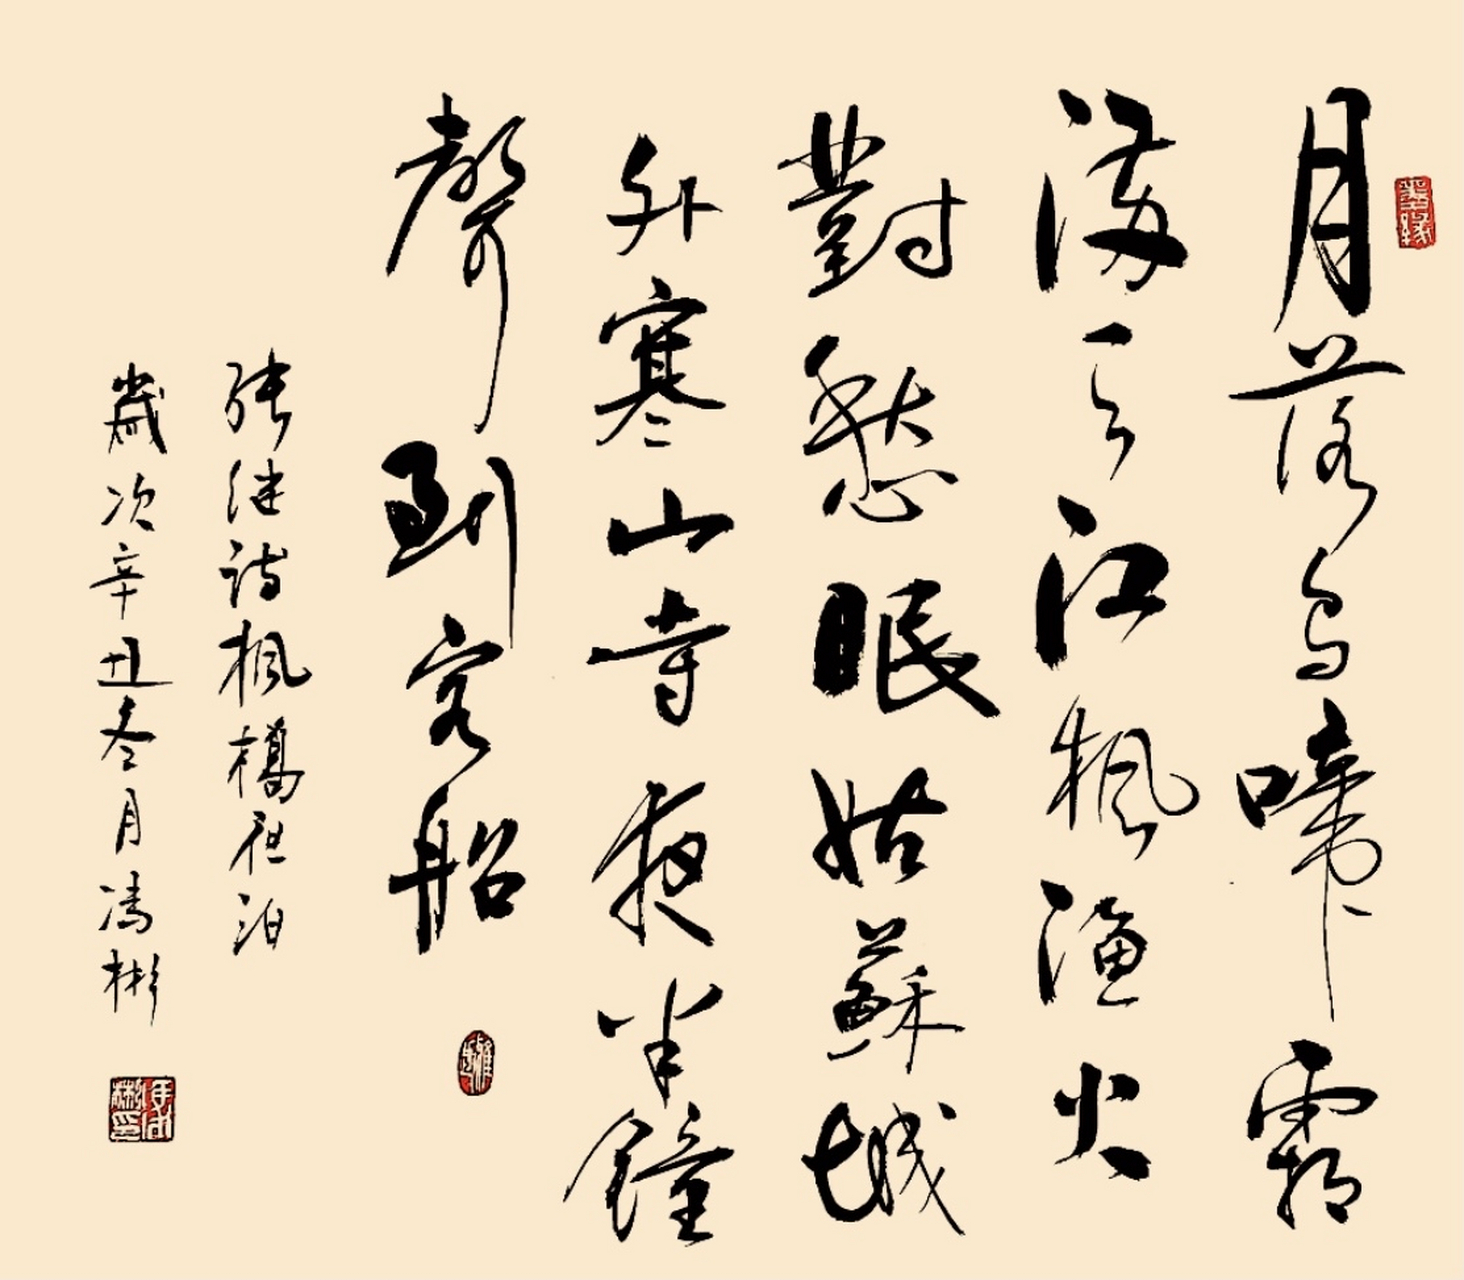 月落烏啼霜
滿天江楓漁火
對愁眠姑蘇城
外寒山寺夜半鐘
聲到客船
張继詩楓橋夜泊
歲次辛丑冬月冯彬